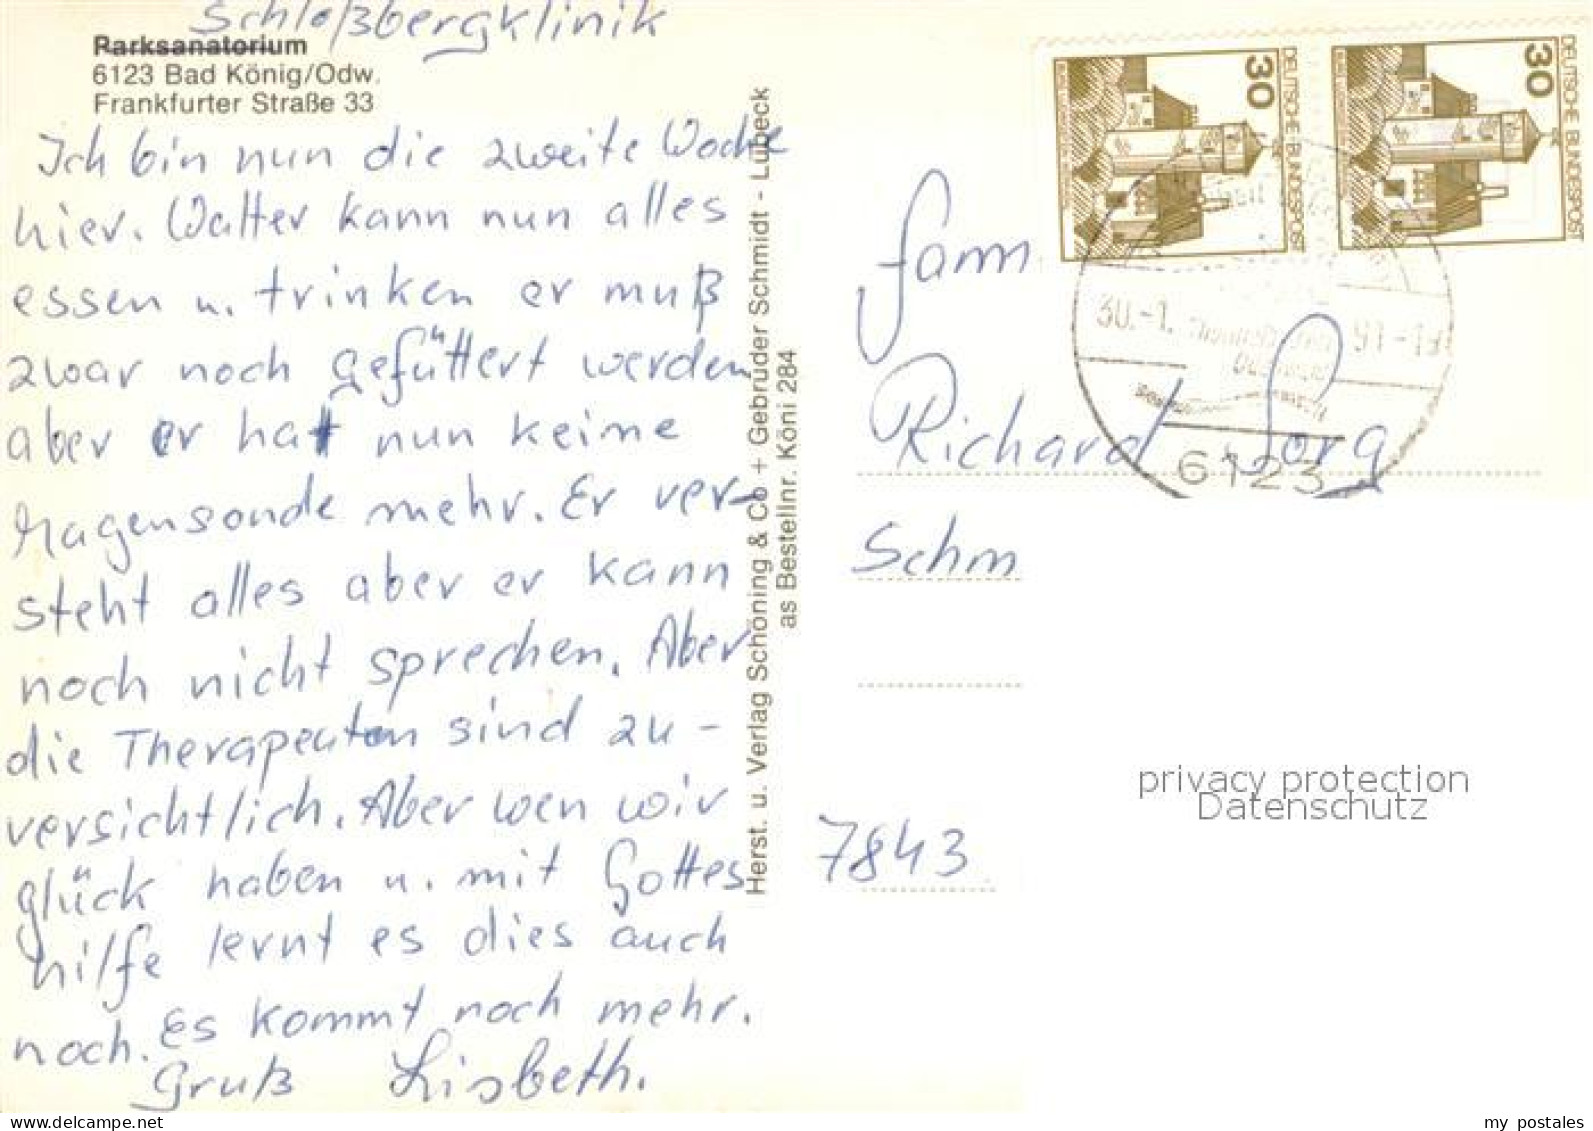 Schloßbergklinik
Parksanatorium
6123 Bad König/Odw.
Frankfurter Straße 33
Ich bin nun die zweite Woche
hier. Walter kann nun alles
essen u. trinken er muß
zwar noch gefüttert werden
aber er hat nun keine
Magensonde mehr. Er ver-
steht alles aber er kann
noch nicht sprechen. Aber
die Therapeuten sind zu-
versichtlich. Aber wen wir
glück haben u. mit Gottes
hilfe lernt es dies auch
noch. Es kommt noch mehr.
Gruß Lisbeth.
Herst. u. Verlag Schöning & Co + Gebrüder Schmidt - Lübeck
as Bestellnr. Köni 284
30
DEUTSCHE BUNDESPOST
30
DEUTSCHE BUNDESPOST
30.-1.
6123
Fam
Richard Sorg
Schm
7843
privacy protection
Datenschutz
my postales